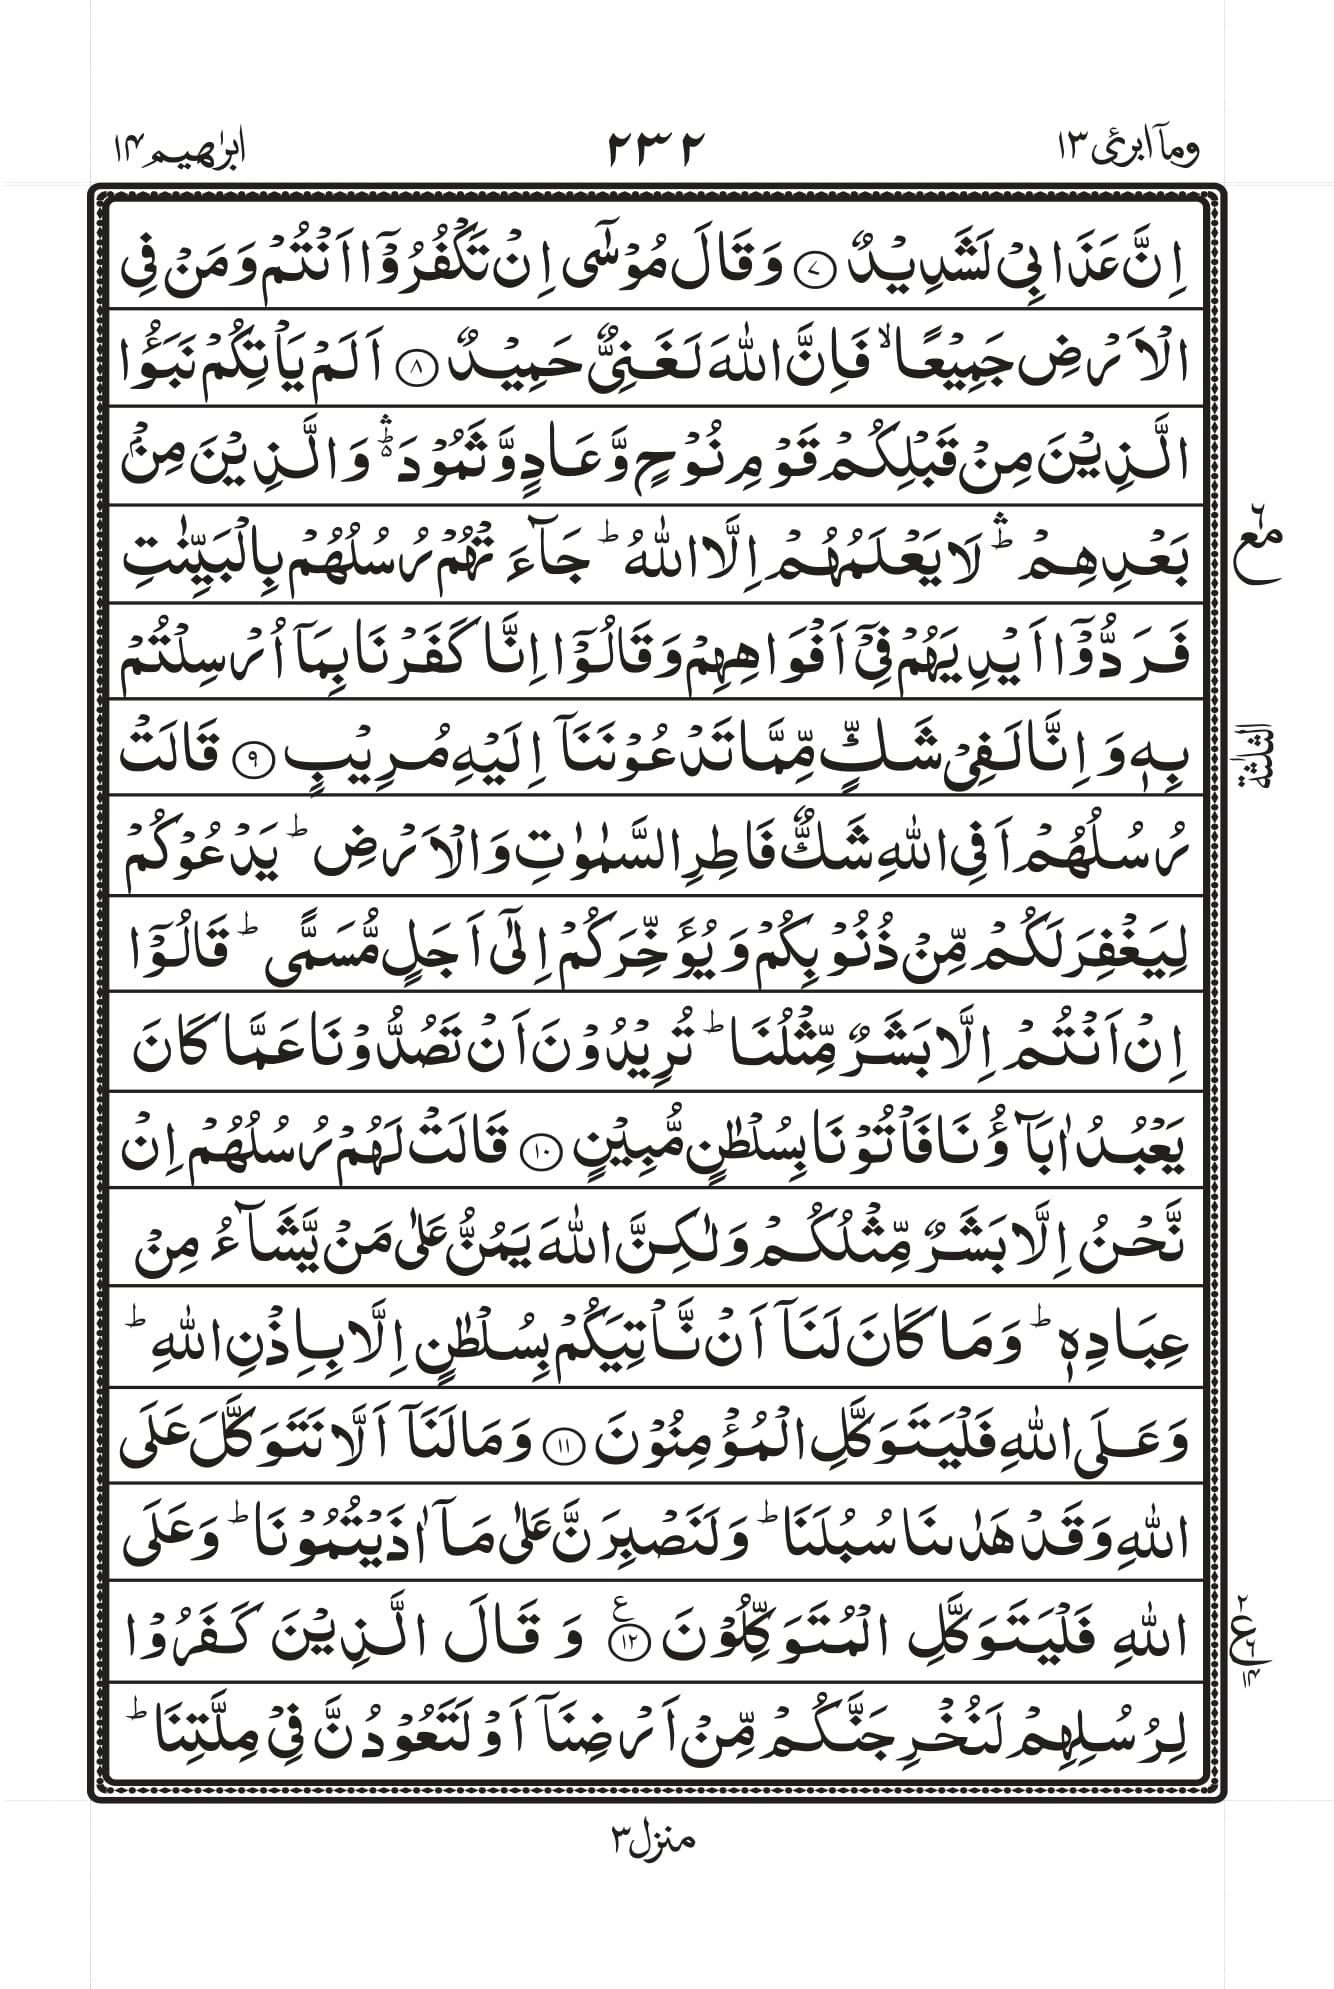 وماۤ ابرئ ١٣
٢٣٢
ابرٰهيم ١٤
اِنَّ عَذَابِیْ لَشَدِیْدٌ ﴿٧﴾ وَقَالَ مُوْسٰۤی اِنْ تَكْفُرُوْۤا اَنْتُمْ وَمَنْ فِی
الْاَرْضِ جَمِیْعًا ۙ فَاِنَّ اللّٰهَ لَغَنِیٌّ حَمِیْدٌ ﴿٨﴾ اَلَمْ یَاْتِكُمْ نَبَؤُا
الَّذِیْنَ مِنْ قَبْلِكُمْ قَوْمِ نُوْحٍ وَّعَادٍ وَّثَمُوْدَ ۛؕ۬ وَالَّذِیْنَ مِنْۢ
بَعْدِهِمْ ۛؕ لَا یَعْلَمُهُمْ اِلَّا اللّٰهُ ؕ جَآءَتْهُمْ رُسُلُهُمْ بِالْبَیِّنٰتِ
فَرَدُّوْۤا اَیْدِیَهُمْ فِیْۤ اَفْوَاهِهِمْ وَقَالُوْۤا اِنَّا كَفَرْنَا بِمَاۤ اُرْسِلْتُمْ
بِهٖ وَاِنَّا لَفِیْ شَكٍّ مِّمَّا تَدْعُوْنَنَاۤ اِلَیْهِ مُرِیْبٍ ﴿٩﴾ قَالَتْ
رُسُلُهُمْ اَفِی اللّٰهِ شَكٌّ فَاطِرِ السَّمٰوٰتِ وَالْاَرْضِ ؕ یَدْعُوْكُمْ
لِیَغْفِرَ لَكُمْ مِّنْ ذُنُوْبِكُمْ وَیُؤَخِّرَكُمْ اِلٰۤی اَجَلٍ مُّسَمًّی ؕ قَالُوْۤا
اِنْ اَنْتُمْ اِلَّا بَشَرٌ مِّثْلُنَا ؕ تُرِیْدُوْنَ اَنْ تَصُدُّوْنَا عَمَّا كَانَ
یَعْبُدُ اٰبَآؤُنَا فَاْتُوْنَا بِسُلْطٰنٍ مُّبِیْنٍ ﴿١٠﴾ قَالَتْ لَهُمْ رُسُلُهُمْ اِنْ
نَّحْنُ اِلَّا بَشَرٌ مِّثْلُكُمْ وَلٰكِنَّ اللّٰهَ یَمُنُّ عَلٰی مَنْ یَّشَآءُ مِنْ
عِبَادِهٖ ؕ وَمَا كَانَ لَنَاۤ اَنْ نَّاْتِیَكُمْ بِسُلْطٰنٍ اِلَّا بِاِذْنِ اللّٰهِ ؕ
وَعَلَی اللّٰهِ فَلْیَتَوَكَّلِ الْمُؤْمِنُوْنَ ﴿١١﴾ وَمَا لَنَاۤ اَلَّا نَتَوَكَّلَ عَلَی
اللّٰهِ وَقَدْ هَدٰىنَا سُبُلَنَا ؕ وَلَنَصْبِرَنَّ عَلٰی مَاۤ اٰذَیْتُمُوْنَا ؕ وَعَلَی
اللّٰهِ فَلْیَتَوَكَّلِ الْمُتَوَكِّلُوْنَ ﴿١٢﴾ ع وَقَالَ الَّذِیْنَ كَفَرُوْا
لِرُسُلِهِمْ لَنُخْرِجَنَّكُمْ مِّنْ اَرْضِنَاۤ اَوْ لَتَعُوْدُنَّ فِیْ مِلَّتِنَا ؕ
مع ٦
الثلٰثة
٢
ع
٦
١٤
منزل ٣